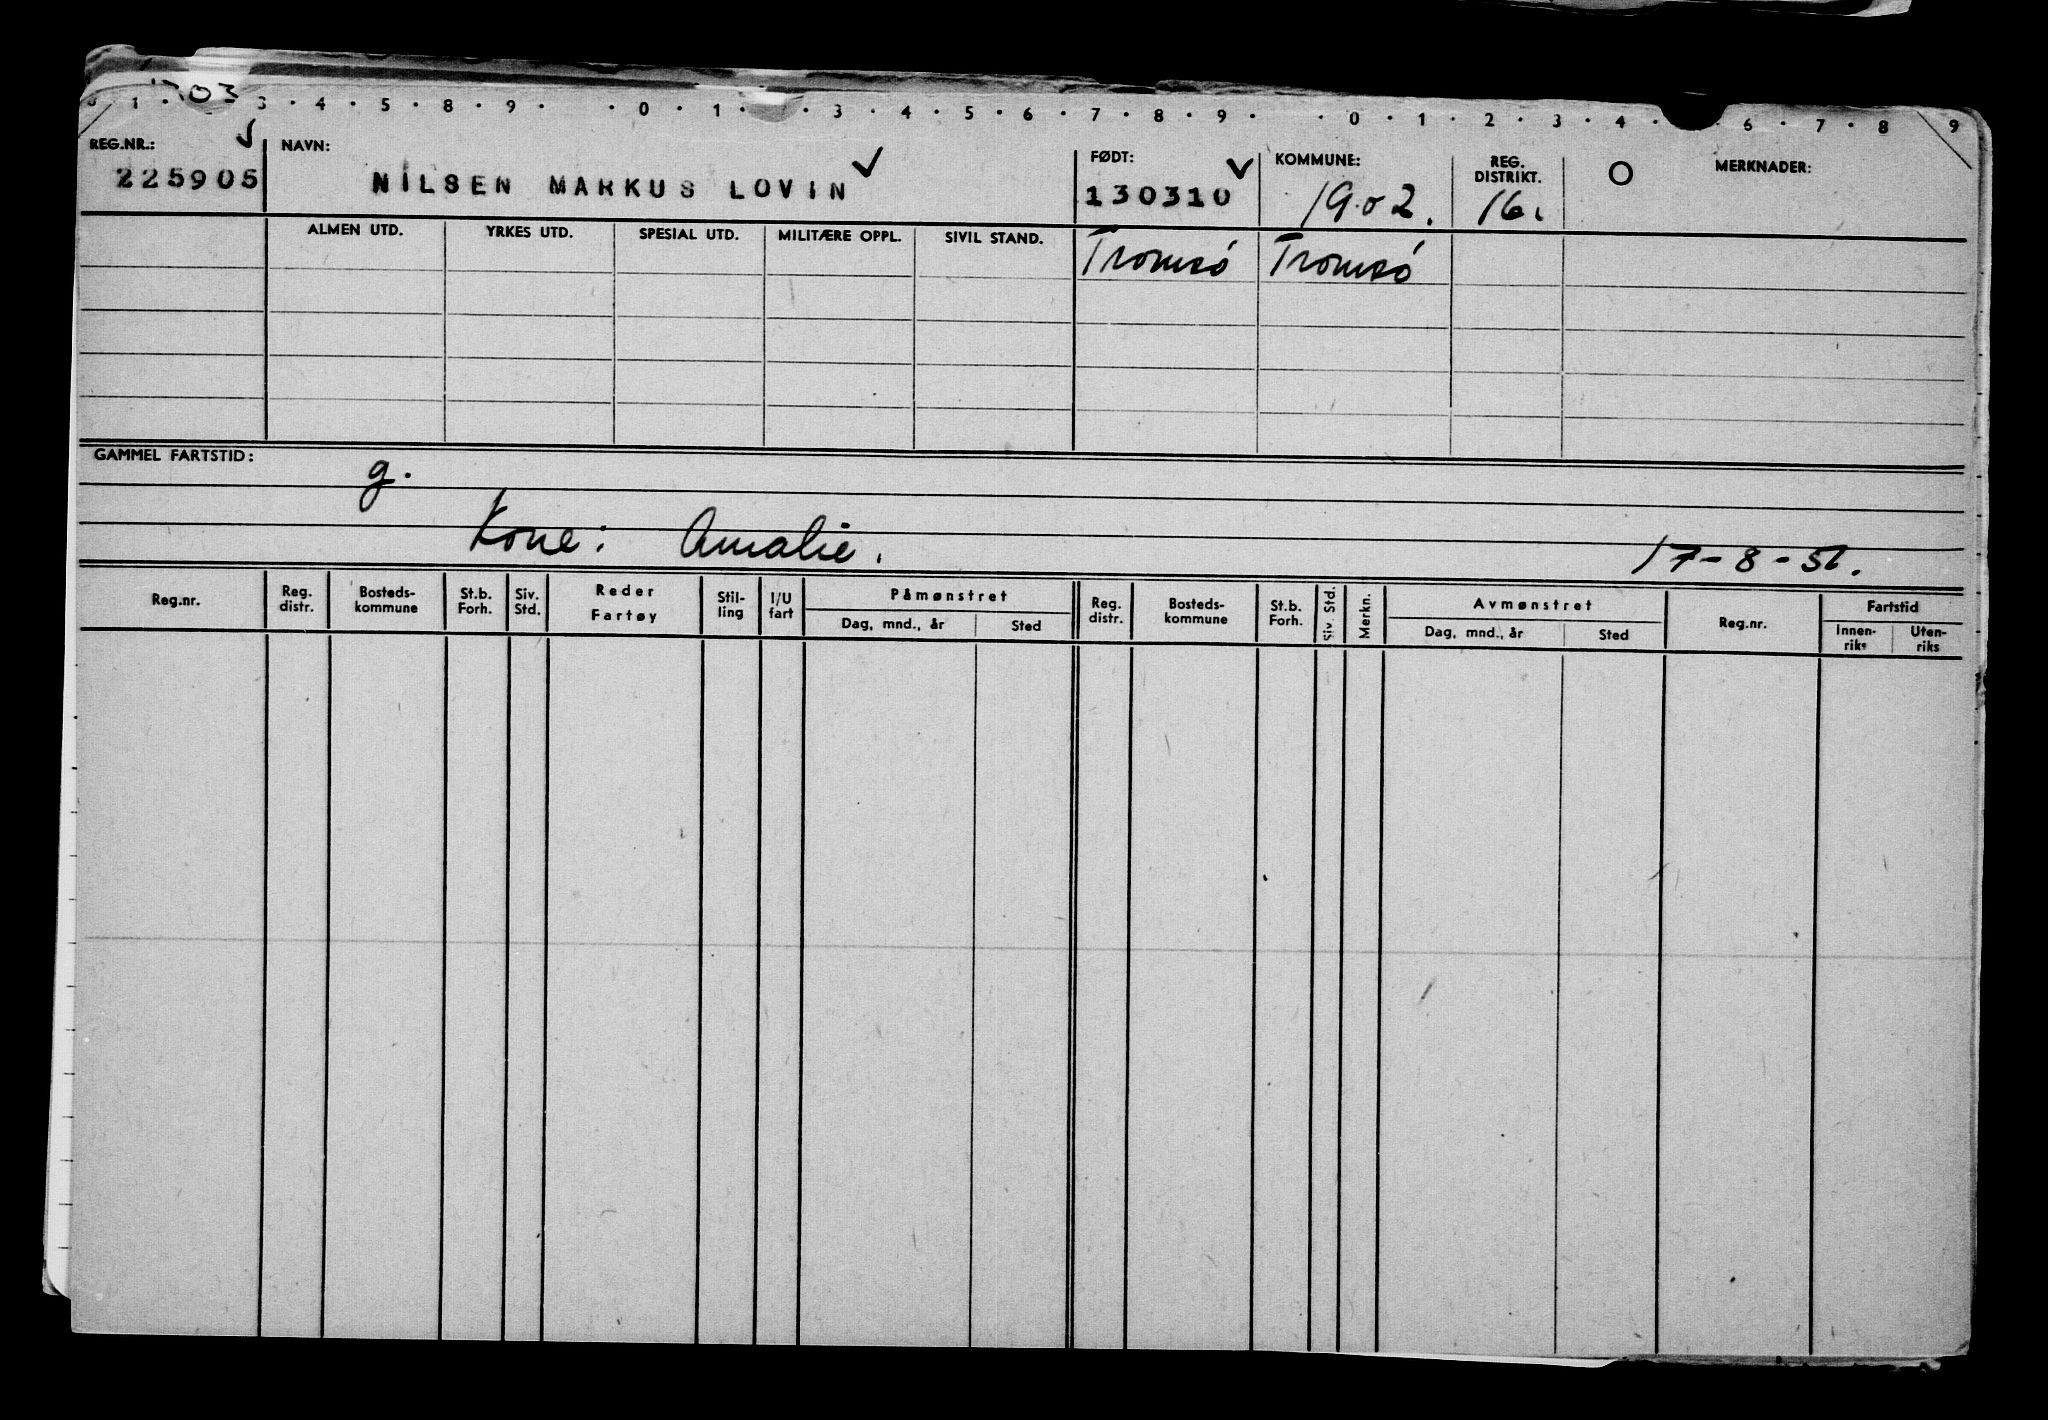 1 · 03 3 · 4 · 5 · 8 · 9 · · 0 · 1 · · 3 · 4 · 5 · 6 · 7 · 8 · 9 · · 0 · 1 · 2 · 3 · 4 · 6 · 7 · 8 9
REG.NR.: NAVN: FØDT: KOMMUNE: REG. DISTRIKT. O MERKNADER:
225905 NILSEN MARKUS LOVIN 130310 1902. 16.
ALMEN UTD. YRKES UTD. SPESIAL UTD. MILITÆRE OPPL. SIVIL STAND. Tromsö Tromsö
GAMMEL FARTSTID: g.
Kone: Amalie. 17-8-51.
Reg.nr. Reg. distr. Bosteds- kommune St.b. Forh. Siv. Std. Reder Fartøy Stil- ling I/U fart Påmønstret Reg. distr. Bosteds- kommune St.b. Forh. Siv. Std. Merkn. Avmønstret Reg.nr. Fartstid
Dag, mnd., år Sted Dag, mnd., år Sted Innen- riks Uten- riks